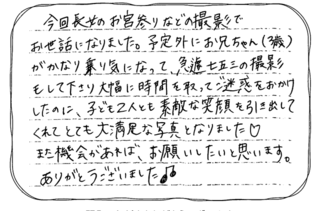 今回長女のお宮参りなどの撮影で
お世話になりました。予定外にお兄ちゃん(3歳)
がかなり乗り気になって、急遽七五三の撮影
をして下さり大幅に時間を取ってご迷惑をおかけ
したのに、子ども2人とも素敵な笑顔を引き出して
くれてとても大満足な写真となりました♡
また機会があれば、お願いしたいと思います。
ありがとうございました♪♪